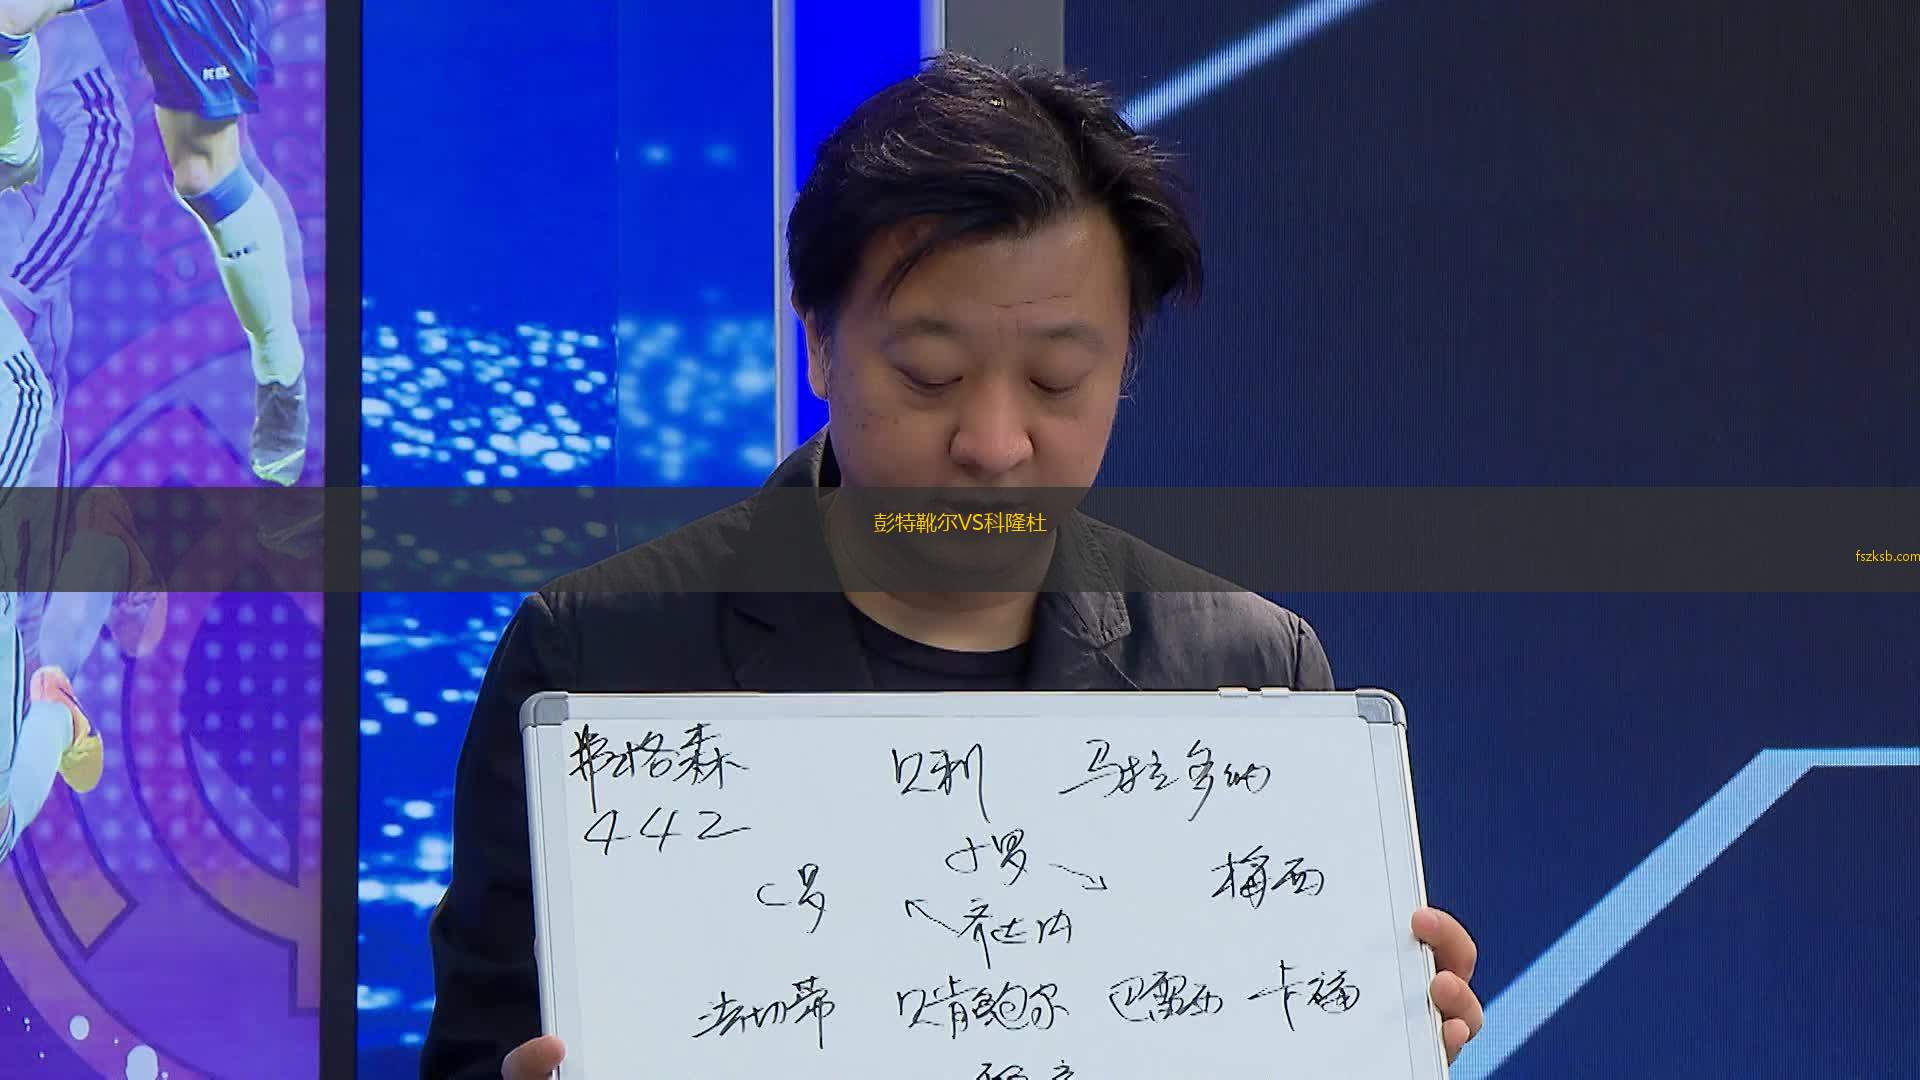 彭特靴尔VS科隆杜
fszksb.com
弗格森 贝利 马拉多纳
442
小罗
C罗 梅西
齐达内
法切蒂 贝肯鲍尔 巴雷西 卡福